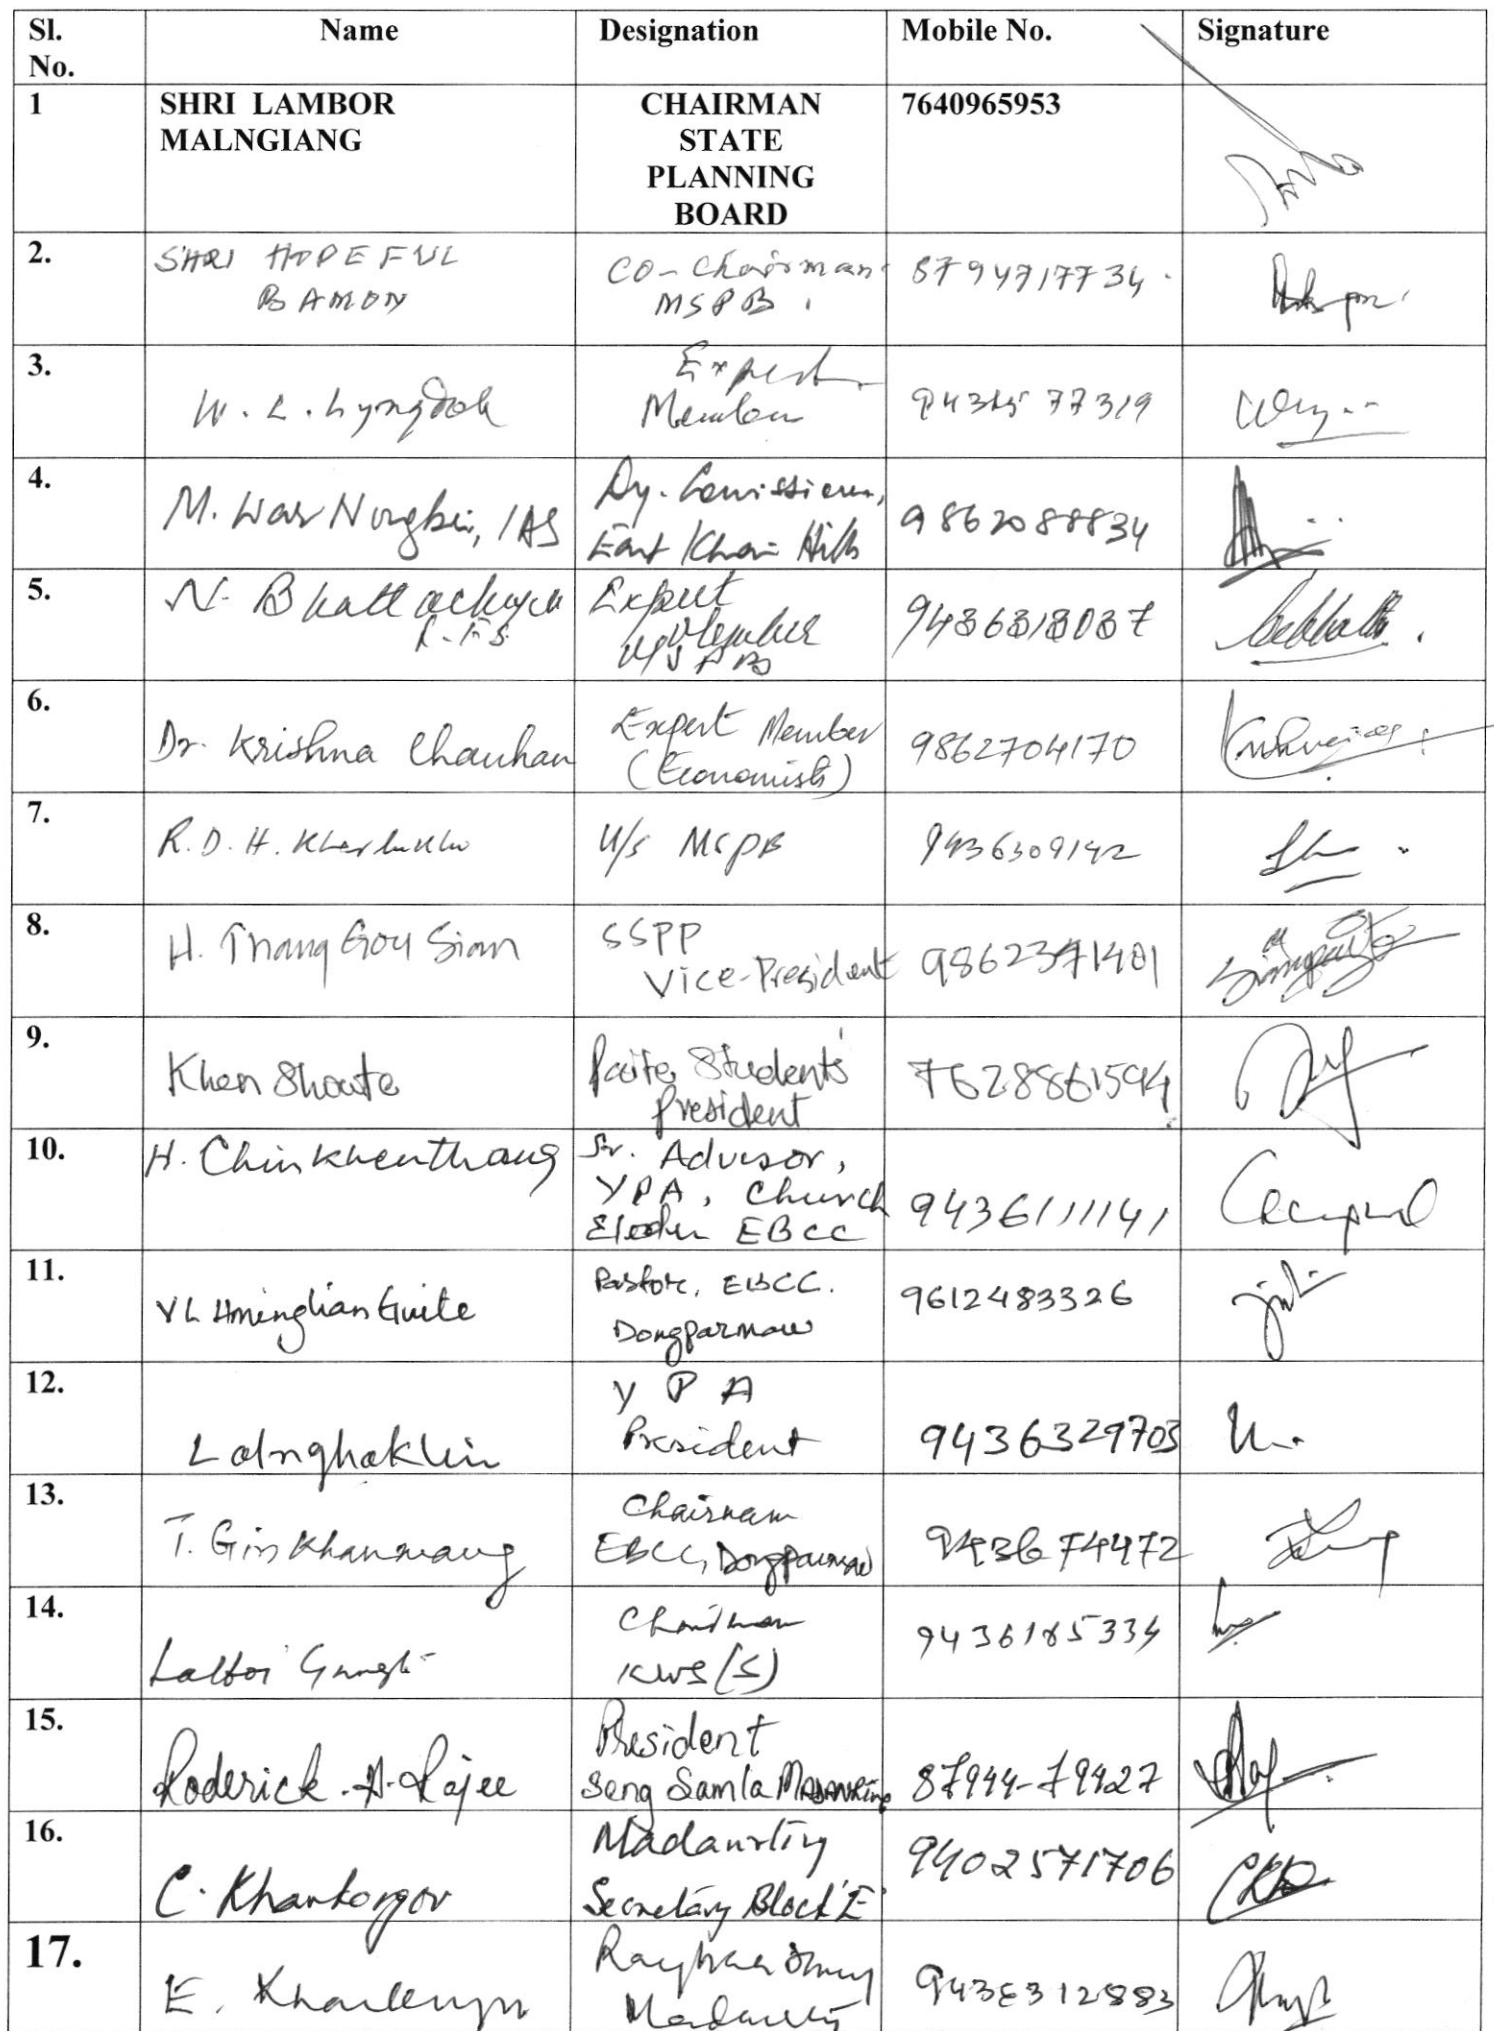 Sl. No. Name Designation Mobile No. Signature
1 SHRI LAMBOR MALNGIANG CHAIRMAN STATE PLANNING BOARD 7640965953
2. SHRI HOPEFUL BAMON CO-Chairman MSPB. 8794717734
3. W. L. Lyngdoh Expert Member
4. M. War Nongbri, IAS Dy. Commissioner, East Khasi Hills 9862088834
5. N. Bhattacharya Expert Member MSPB
6. Dr. Krishna Chauhan Expert Member (Economists) 9862704170
7. R.D.H. Kharlukhi U/s MSPB 9436309142
8. H. Thang Gou Sian SSPP Vice-President
9. Khen Shoute Paite Students' President 7628861594
10. H. Chinkhenthang Sr. Advisor, YPA, Church Elder EBCC 9436111141
11. VL Hminglian Guite Pastor, EBCC. Dongparmaw 9612483326
12. Lalnghaklin YPA President 9436329703
13. T. Gin Khanmang Chairman EBCC, Dongparmaw 9436674472
14. Chairman KWS (S) 9436185334
15. Roderick. A. Rajee President Seng Samla Madanrting 87944-79427
16. C. Kharkongor Madanrting Secretary Block 'E' 9402571706
17. E. 9436312883